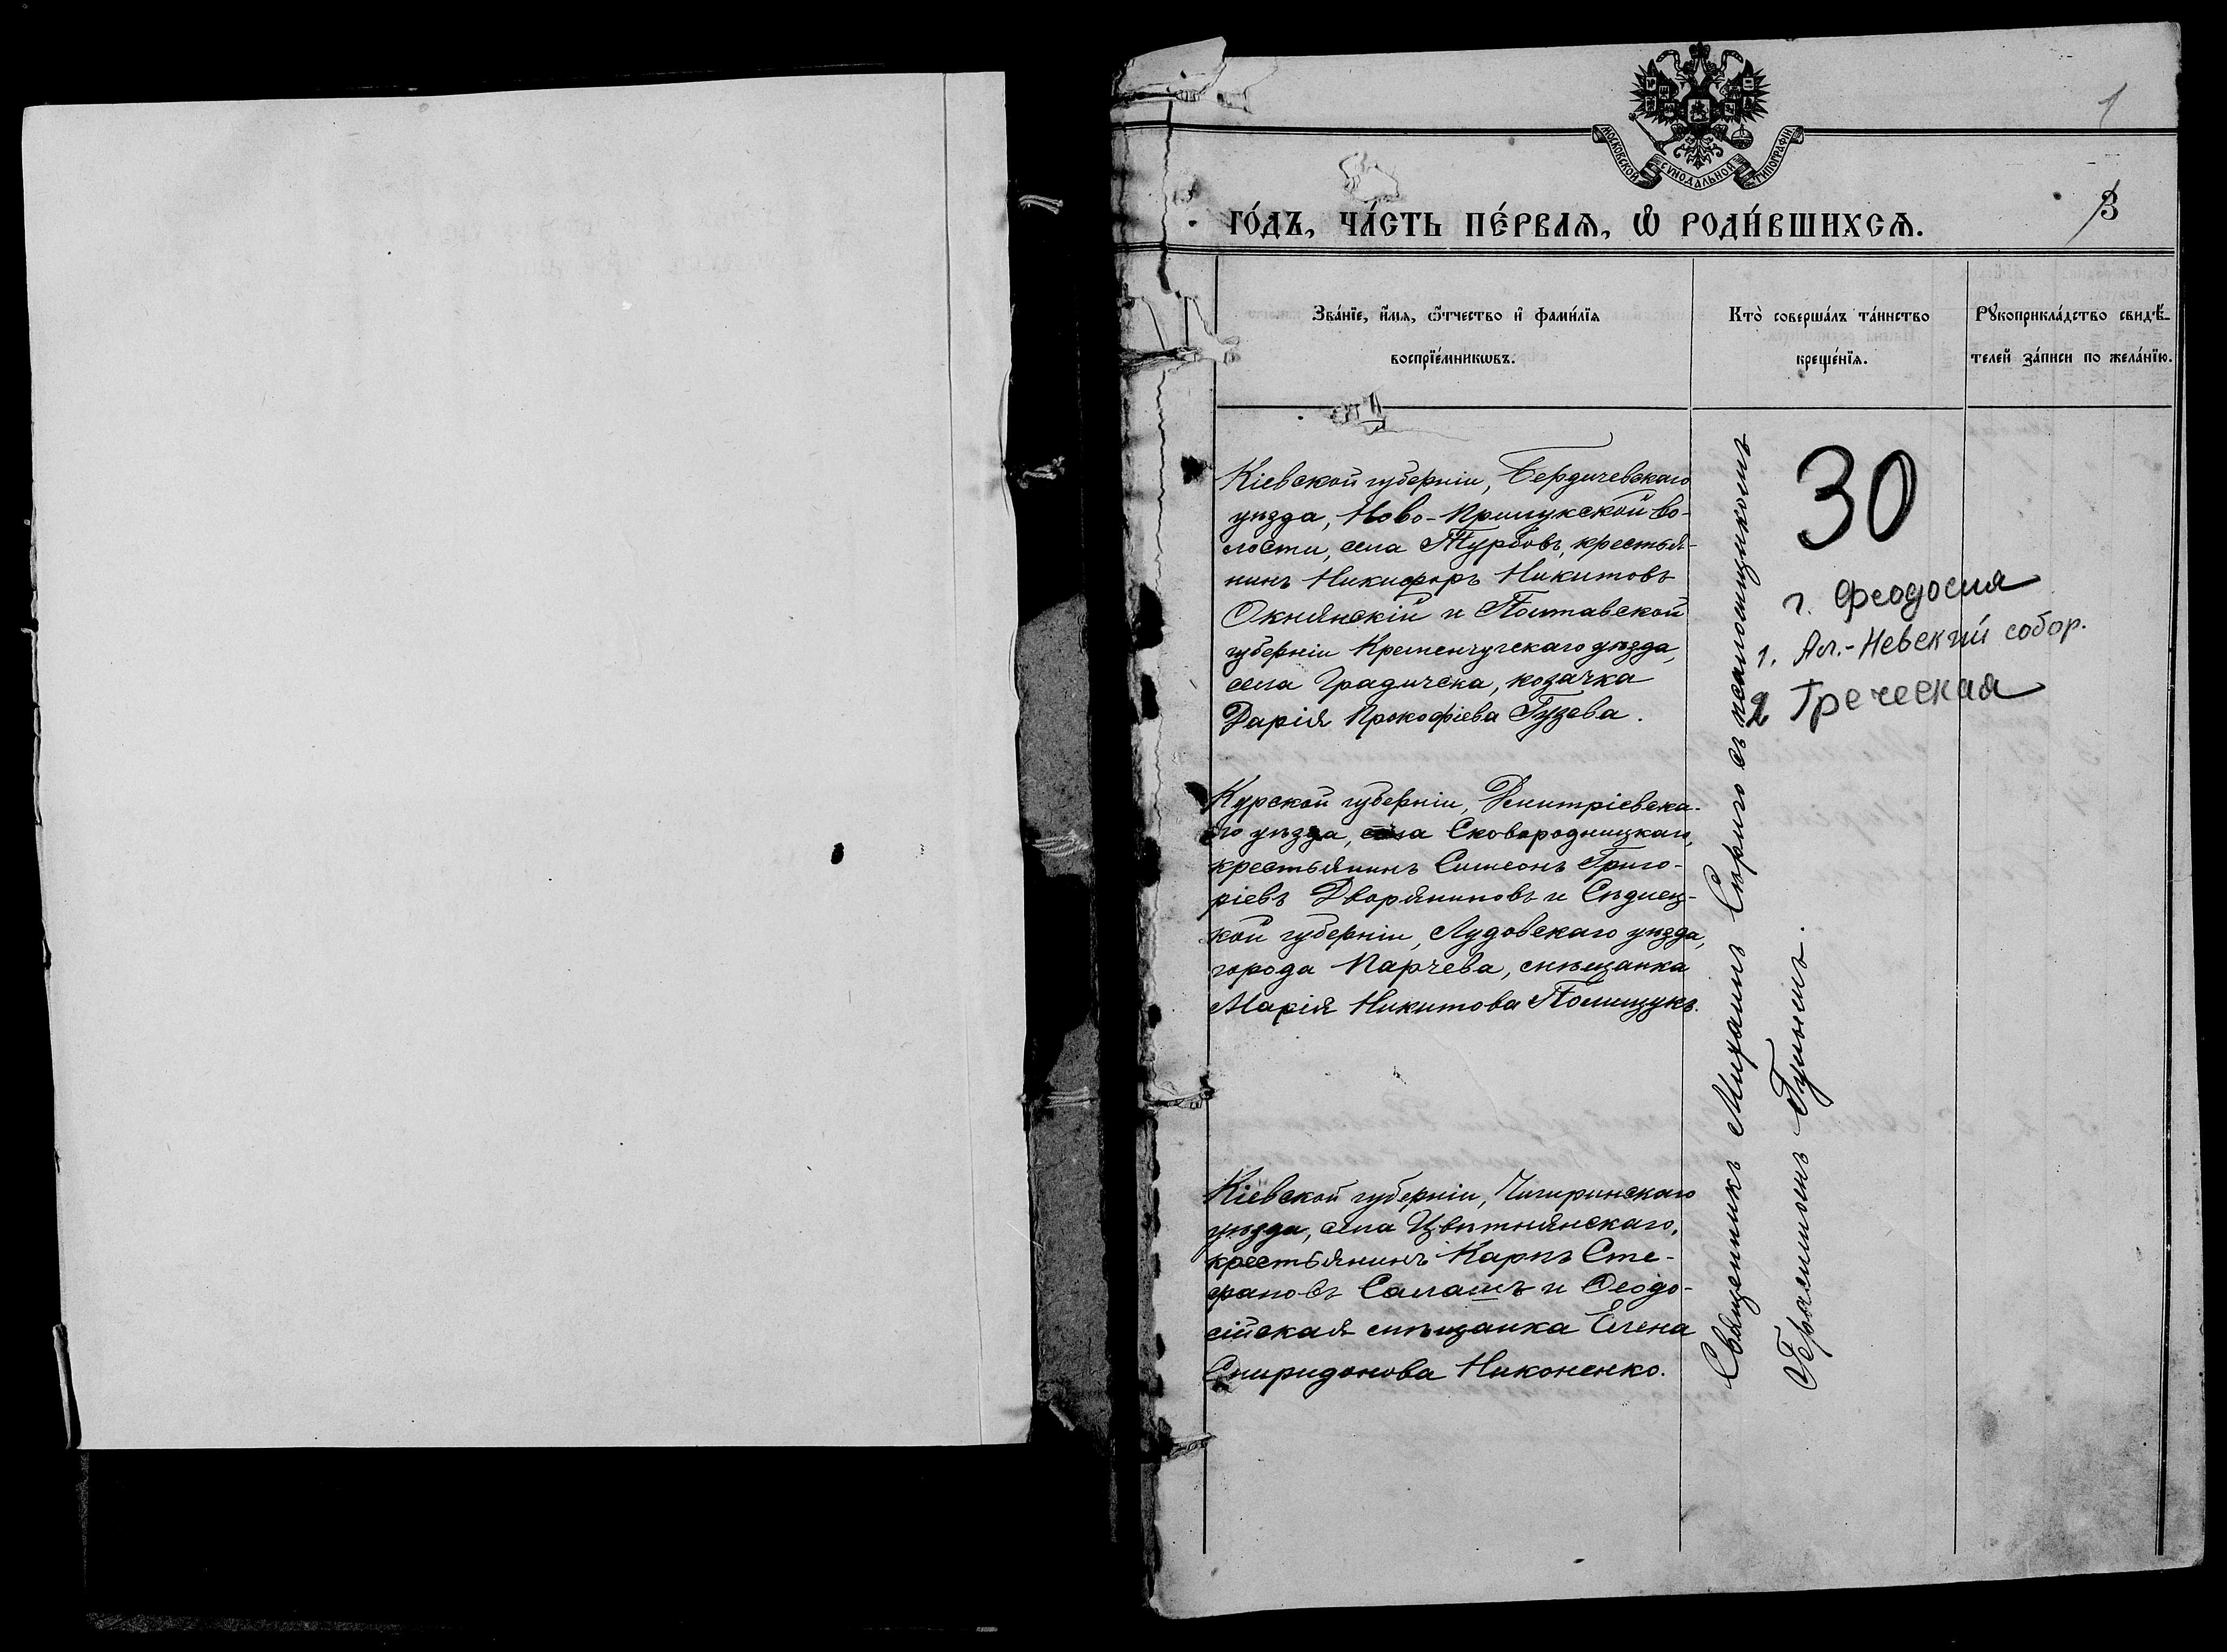 1
МОСКОВСКОЙ СѴНОДАЛЬНОЙ ТИПОГРАФІИ
ГО́ДЪ, ЧА́СТЬ ПЕ́РВАѦ, Ѽ РОДИ́ВШИХСѦ.
3
Зва́нїе, и҆́мѧ, ѻ҆́тчество и҆ фамилїѧ
воспрїе́мникѡвъ.
Кто̀ соверша́лъ та́инство
креще́нїѧ.
Рꙋкоприкла́дство свидѣ́-
телей за́писи по жела́нїю.
Кіевской губерніи, Бердичевскаго
уѣзда, Ново-Прилукской во-
лости, села Турбовъ, крестья-
нинъ Никифоръ Никитовъ
Окнянскій и Полтавской
губерніи Кременчугскаго уѣзда,
села Градичска, козачка
Дарія Прокофіева Гузева.
Курской губерніи, Дмитріевска-
го уѣзда, села Сковородницкаго,
крестьянинъ Симеонъ Григо-
ріевъ Дворяниновъ и Сѣдлец-
кой губерніи, Лудовскаго уѣзда,
города Парчева, мѣщанка
Марія Никитова Полищукъ.
Кіевской губерніи, Чигиринскаго
уѣзда, села Цвѣтнянскаго,
крестьянинъ Карпъ Сте-
фановъ Саламъ и Ѳеодо-
сійская мѣщанка Елена
Спиридонова Никоненко.
Священникъ Михаилъ Сѣрого съ псаломщикомъ
30
г. Феодосия
1. Ал.-Невский собор.
2 Греческая